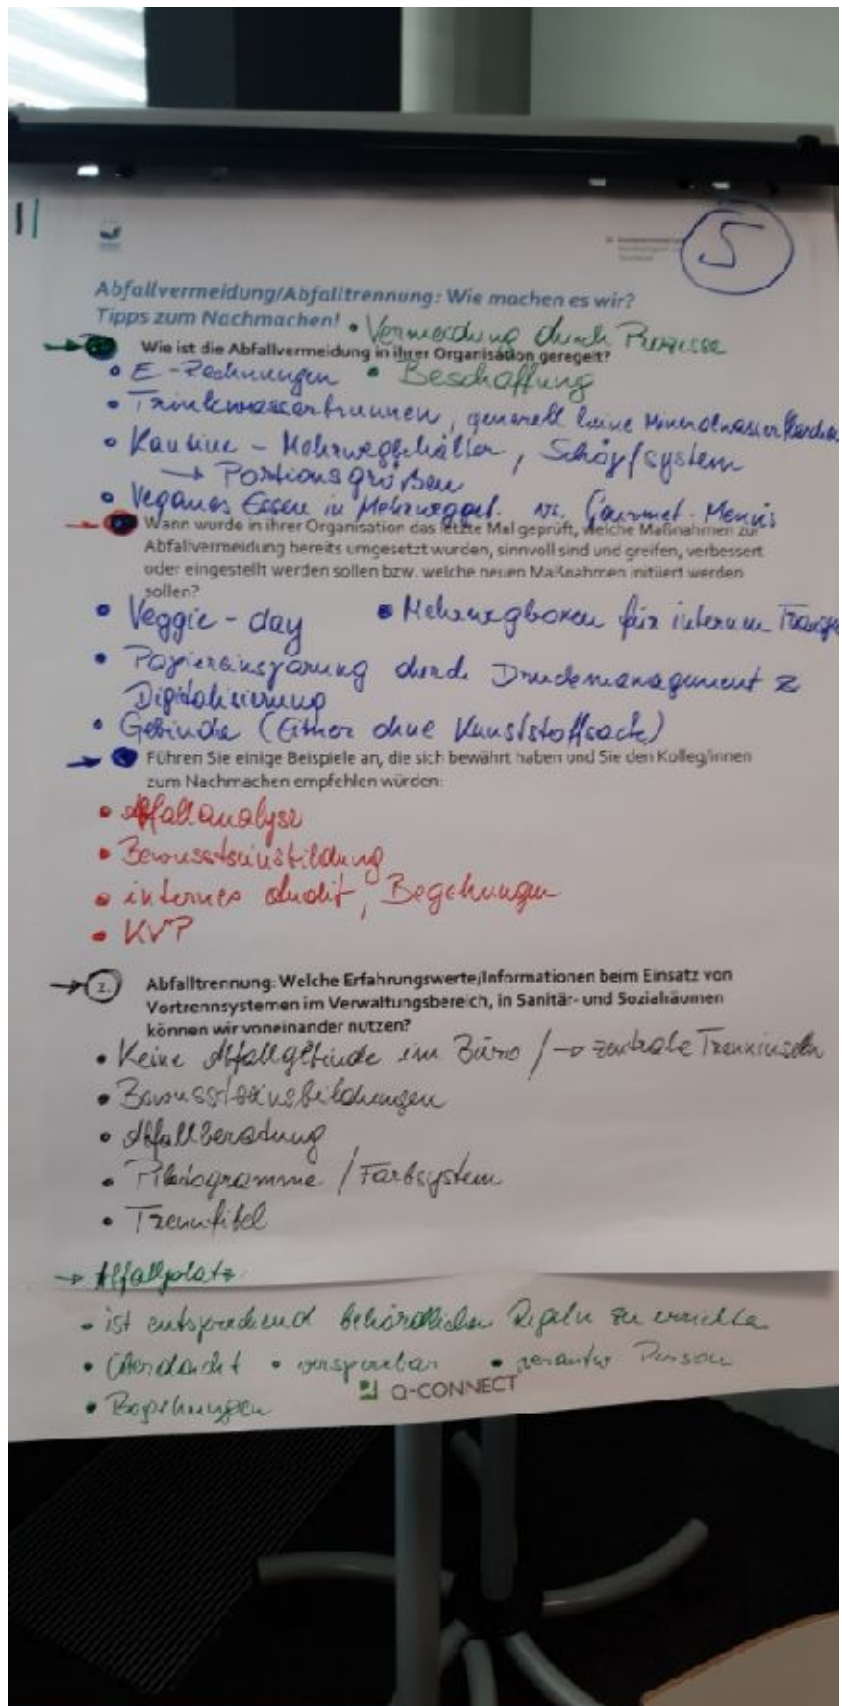 5
Abfallvermeidung/Abfalltrennung: Wie machen es wir?
Tipps zum Nachmachen!
• Vermeidung durch Prozesse
Wie ist die Abfallvermeidung in ihrer Organisation geregelt?
• E-Rechnungen • Beschaffung
• Trinkwasserbrunnen, generell keine Mineralwasserflaschen
• Kantine - Mehrwegbehälter, Schöpfsystem
→ Portionsgrößen
• Veganes Essen in Mehrweggeb. vs. Gourmet-Menüs
Wann wurde in ihrer Organisation das letzte Mal geprüft, welche Maßnahmen zur
Abfallvermeidung bereits umgesetzt wurden, sinnvoll sind und greifen, verbessert
oder eingestellt werden sollen bzw. welche neuen Maßnahmen initiiert werden
sollen?
• Veggie-day • Mehrwegboxen für internen
• Papiereinsparung durch Druckmanagement
Digitalisierung
• Gebinde (Eimer ohne Kunststoffsack)
Führen Sie einige Beispiele an, die sich bewährt haben und Sie den Kolleg/innen
zum Nachmachen empfehlen würden:
• Abfallanalyse
• Bewusstseinsbildung
• internes Audit, Begehungen
• KVP
→ 2. Abfalltrennung: Welche Erfahrungswerte/Informationen beim Einsatz von
Vortrennsystemen im Verwaltungsbereich, in Sanitär- und Sozialräumen
können wir voneinander nutzen?
• Keine Abfallgebinde im Büro / → zentrale Trenninseln
• Bewusstseinsbildungen
• Abfallberatung
• Piktogramme / Farbsystem
• Trennfibel
→ Abfallplatz
• ist entsprechend behördlichen Regeln zu errichten
• Überdacht • versperrbar • Person
• Begehungen
Q-CONNECT